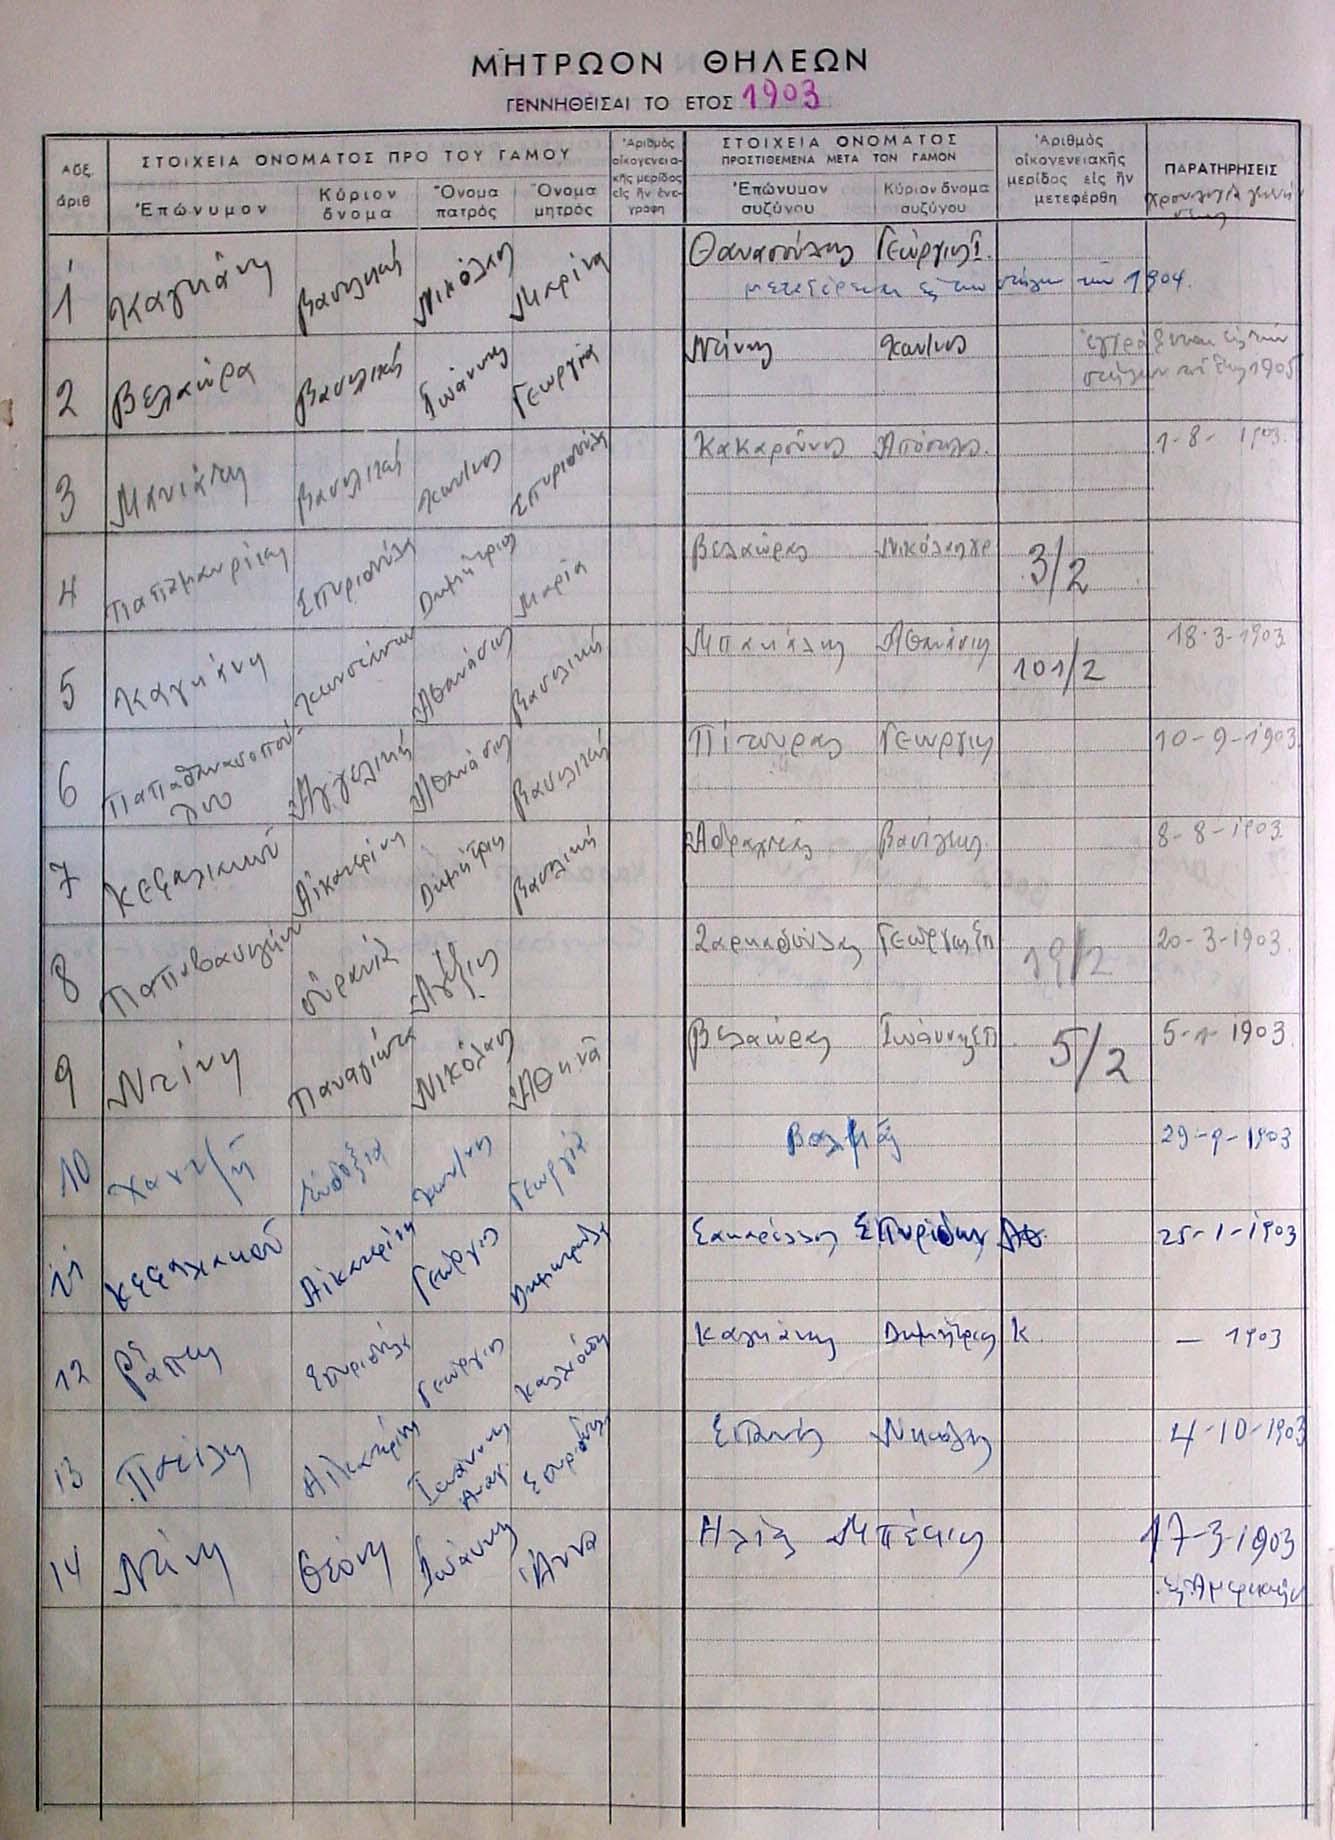 ΜΗΤΡΩΟΝ ΘΗΛΕΩΝ
ΓΕΝΝΗΘΕΙΣΑΙ ΤΟ ΕΤΟΣ 1903
Αὔξ. ἀριθ
ΣΤΟΙΧΕΙΑ ΟΝΟΜΑΤΟΣ ΠΡΟ ΤΟΥ ΓΑΜΟΥ
Ἐπώνυμον
Κύριον ὄνομα
Ὄνομα πατρός
Ὄνομα μητρός
Ἀριθμὸς οἰκογενειακῆς μερίδος εἰς ἣν ἐνεγράφη
ΣΤΟΙΧΕΙΑ ΟΝΟΜΑΤΟΣ ΠΡΟΣΤΙΘΕΜΕΝΑ ΜΕΤΑ ΤΟΝ ΓΑΜΟΝ
Ἐπώνυμον συζύγου
Κύριον ὄνομα συζύγου
Ἀριθμὸς οἰκογενειακῆς μερίδος εἰς ἣν μετεφέρθη
ΠΑΡΑΤΗΡΗΣΕΙΣ
1 Καγκάνη Βασιλική Νικόλαος Μαρίνα Θανασούλης Γεώργιος
1904.
2 Βελαώρα Βασιλική Ἰωάννης Γεωργία Ντίνης Κων/νος
1905
3 Μανιάτη Βασιλική Κων/νος Σπυριδούλα Κακαρούνης Ἀπόστολ. 1-8- 1903.
4 Σπυριδούλα Δημήτριος Μαρία Βελαώρας Νικόλαος 3/2
5 Καγκάνη Ἀθανάσιος Βασιλική Μπακάλης Ἀθανάσιος 101/2 18-3-1903
6 Παπαθανασοπούλου Ἀγγελική Ἀθανάσιος Βασιλική Πίτουρας Γεώργιος 10-9-1903
7 Κεφαλιακοῦ Αἰκατερίνη Δημήτριος Βασιλική 8-8-1903
8 Παπαβασιλείου Οὐρανία Ἀλέξιος Ζαρκαδούλας Γεώργιος Σπ 19/2 20-3-1903.
9 Ντίνη Παναγιώτα Νικόλαος Ἀθηνᾶ Βελαώρας Ἰωάννης Σπ 5/2 5-1-1903
10 Χαντζῆ Εὐδοξία Κων/νος Γεωργία 29-9-1903
11 Κεφαλιακοῦ Αἰκατερίνη Γεώργιος Σακαρέλλος Σπυρίδων Αθ. 25-1-1903
12 Ράπτη Σπυριδούλα Γεώργιος Καλλιόπη Καγκάνης Δημήτριος Κ. — 1903
13 Πατίλη Αἰκατερίνη Ἰωάννης Αναγ. Σπυριδούλα Σπανός Νικόλαος 4-10-1903
14 Ντίνη Θεόνη Ἰωάννης Ἄννα Ηλίας Μπέσης 17-3-1903